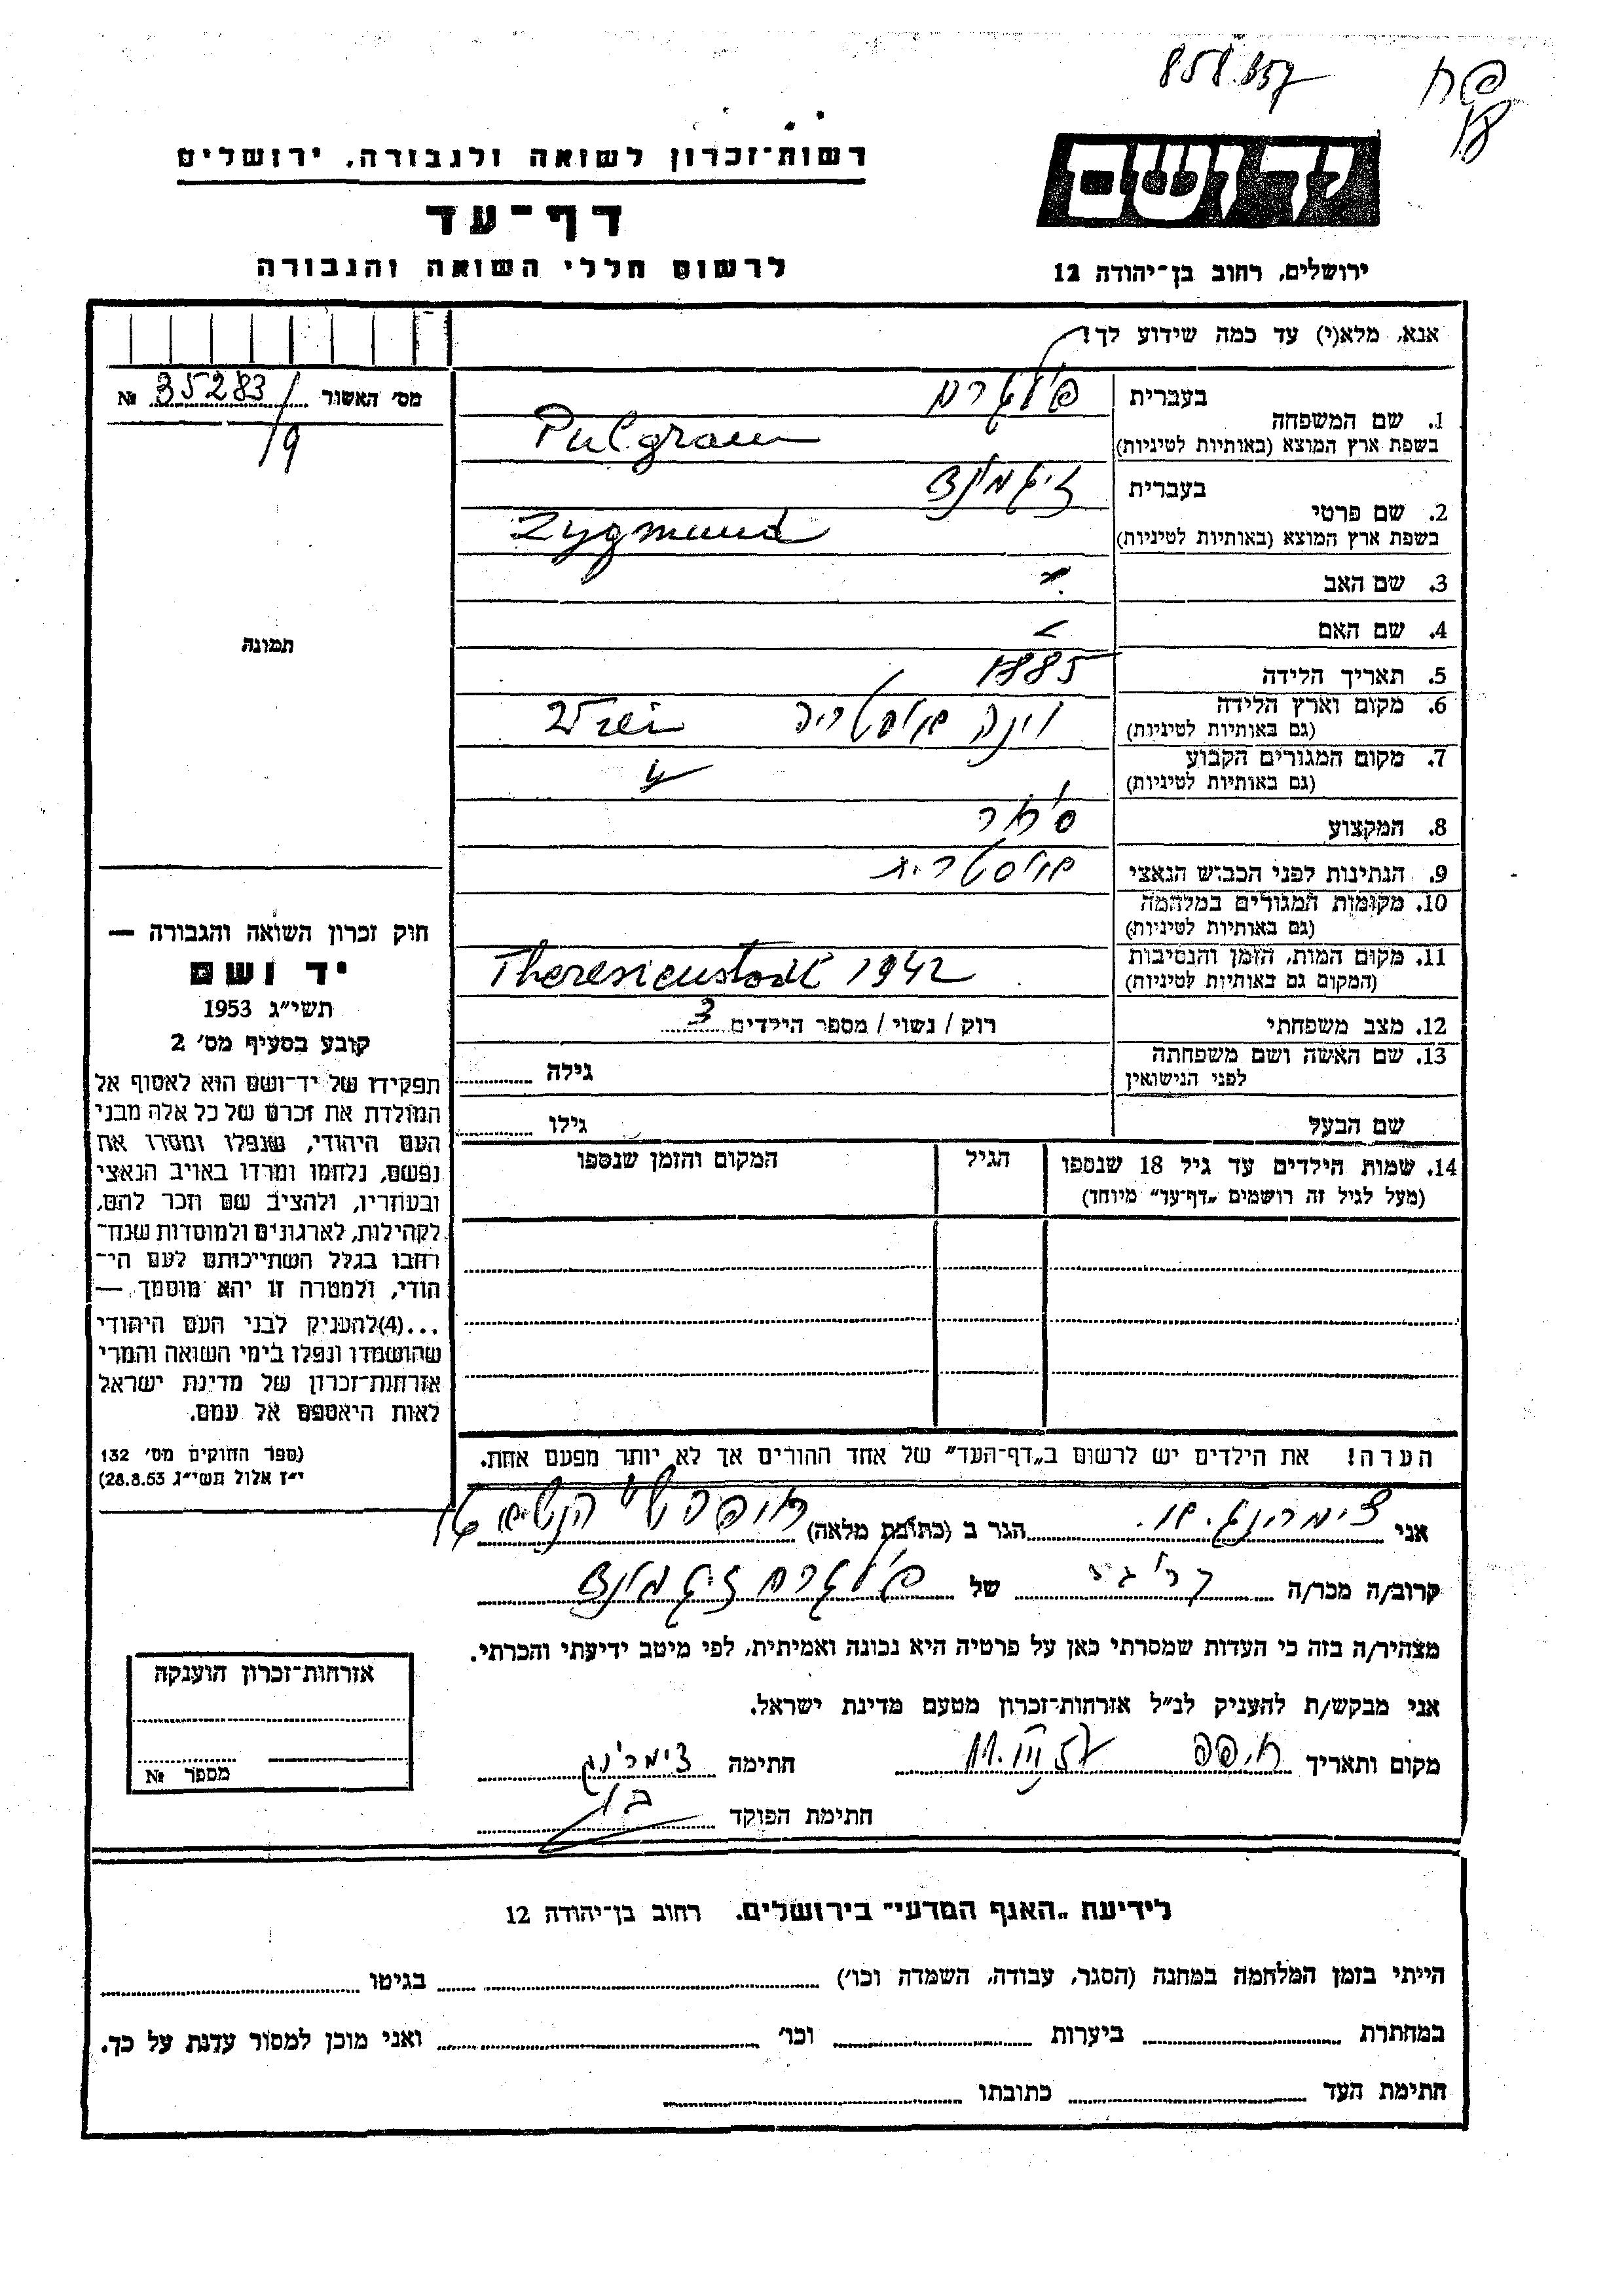 858.857
רשות־זכרון לשואה ולגבורה, ירושלים
יד ושם
דף־עד
לרשום חללי השואה והגבורה
ירושלים, רחוב בן־יהודה 12
אנא, מלא(י) עד כמה שידוע לך!
מס׳ האשור 35283/ №
19
1. שם המשפחה בעברית פולגרם
בשפת ארץ המוצא (באותיות לטיניות) Pulgram
2. שם פרטי בעברית זיגמונד
בשפת ארץ המוצא (באותיות לטיניות) Zygmund
3. שם האב
4. שם האם
תמונה
5. תאריך הלידה 1885
6. מקום וארץ הלידה (גם באותיות לטיניות) וינה אוסטריה Wien
7. מקום המגורים הקבוע (גם באותיות לטיניות)
8. המקצוע סוחר
9. הנתינות לפני הכבוש הנאצי
10. מקומות המגורים במלחמה (גם באותיות לטיניות)
11. מקום המות, הזמן והנסיבות (המקום גם באותיות לטיניות) Theresienstadt 1942
12. מצב משפחתי רוק / נשוי / מספר הילדים 3
13. שם האשה ושם משפחתה לפני הנישואין גילה
שם הבעל גילו
14. שמות הילדים עד גיל 18 שנספו הגיל המקום והזמן שנספו
(מעל לגיל זה רושמים „דף־עד״ מיוחד)
חוק זכרון השואה והגבורה —
יד ושם
תשי״ג 1953
קובע בסעיף מס׳ 2
תפקידו של יד־ושם הוא לאסוף אל
המולדת את זכרם של כל אלה מבני
העם היהודי, שנפלו ומסרו את
נפשם, נלחמו ומרדו באויב הנאצי
ובעוזריו, ולהציב שם וזכר להם,
לקהילות, לארגונים ולמוסדות שנח־
רחבו בגלל השתייכותם לעם הי־
הודי, ולמטרה זו יהא מוסמך —
...(4)להעניק לבני העם היהודי
שהושמדו ונפלו בימי השואה והמרי
אזרחות־זכרון של מדינת ישראל
לאות היאספם אל עמם.
(ספר החוקים מס׳ 132
י״ז אלול תשי״ג 28.8.53)
הערה! את הילדים יש לרשום ב„דף־העד״ של אחד ההורים אך לא יותר מפעם אחת.
אני הגר ב (כתובת מלאה)
קרוב/ה מכר/ה של פולגרם זיגמונד
מצהיר/ה בזה כי העדות שמסרתי כאן על פרטיה היא נכונה ואמיתית, לפי מיטב ידיעתי והכרתי.
אני מבקש/ת להעניק לנ״ל אזרחות־זכרון מטעם מדינת ישראל.
מקום ותאריך חיפה 11.III.57 חתימה
חתימת הפוקד
אזרחות־זכרון הוענקה
מספר №
לידיעת „האגף המדעי״ בירושלים, רחוב בן־יהודה 12
הייתי בזמן המלחמה במחנה (הסגר, עבודה, השמדה וכו׳) בגיטו
במחתרת ביערות וכו׳ ואני מוכן למסור עדות על כך.
חתימת העד כתובתו